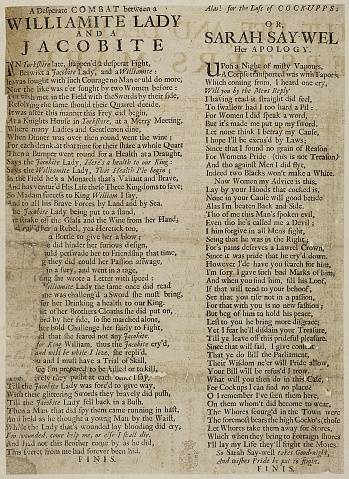 A Desperate COMBAT between a
WILLIAMITE LADY
AND A
JACOBITE
IN Yorkshire late, happen'd a desperat Fight,
Betwixt a Jacobite Lady, and a Williamite:
It was fought with such Courage no Man could do more;
Nor the like was e'er fought by two Women before:
For they met in the Field with the Swords by their side,
Resolving the same should their Quarrel decide.
It was after this manner this Frey did begin,
At a Knights House in Yorkshire, at a Merry Meeting,
Where many Ladies and Gentlemen dine,
When Dinner was over then round went the wine:
For each drank at that time for their share a whole Quart
Then a Bumper went round for a Health as a Draught,
Says the Jacobite Lady, Here's a health to our King:
Says the Williamite Lady, That Health I'll begin;
In the Field he's a Monarch that's Valiant and Brave,
And has ventur'd His Life these Three Kingdoms to save;
So Madam foresee to King William I say,
And to all his brave Forces by Land and by Sea.
The Jacobite Lady being put to a stand,
the Glass and the Wine from her Hand,
a Rebel, yea Heretick too,
a bottle to give her a blow;
did hinder her furious design,
perswade her to Friendship that time,
they did, could her Passion asswage,
in a fury, and went in a rage,
she wrote a Letter with speed
Williamite Lady the same once did read
she was challeng'd a Sword she must bring,
for her Drinking a health to our King.
of her Brothers Cloaths she did put on,
by her side, so she marched alone,
her bold Challenge her fairly to Fight,
that she feared not any Jacobite.
for King William, thus the Jacobite cry'd,
and will be while I live, she reply'd.
and I must have a Trial of Skill,
I'm prepared to be killed or to kill,
they push'd at each other I say,
Till the Jacobite Lady was forc'd to give way,
With their glittering Swords they bravely did push,
Till the Jacobite Lady fell back in a Bush.
Then a Man that did spy them came running in hast,
And held as he thought a young Man by the Waist,
While the Lady that's wounded lay bleeding did cry,
I'm wounded, come help me, or else I shall die.
And had not this Brother come by as he did,
This secret from me had forever been hid.
FINIS.
Alas! for the Loss of COCK-UPPS:
OR,
SARAH SAY-WEL
Her APOLOGY.
UPon a Night of misty Vapours,
A Corpse transported was with Tapors
Which coming from, I heard one cry,
Will you by the Mens Reply
I having read it straight did feel,
To swallow had I too hard a Pill:
For Women I did speak a word,
But it's made me put up my sword.
Let none think I betray my Cause,
I hope I'll be excus'd by Laws;
Since that I found no grain of Reason
For Womens Pride (this is not Treason)
And tho against Men I did fly,
Indeed two Blacks won't make a White.
Now Women my Advice is this,
Lay by your Hoods that cocked is,
None in your Cause will good betide
Alas I'm beaten Back and Side.
Tho of me this Man's spoken evil,
Even tho he's called me a Devil;
I him forgive in all Mens sight,
Seing that he was in the Right;
For's pains deserves a Lawrel Crown,
Since it was pride that he cry'd down.
However I'de have you search for him,
I'm sorry I gave such bad Marks of him,
And when you find him, till his Loss,
If that will stop to your behoof,
See that you rise not in a passion,
For that with you is no new fashion;
But beg of him to hold his peace,
Lest to you he bring more disgrace;
Yet I fear he'll disdain your Treature,
Till ye leave off this prideful pleasure.
Since that will fail, give consent
That ye do Bill the Parliament,
Their Wisdom ne'er will Pride allow,
Your Bill will be refus'd I trow.
What will you then do in this Case,
For Cockups I can find no place;
O I remember I've seen them here,
On them whom't did become to wear,
The Whores scourg'd in the Town were
The foremost bears the high Cockups, those
Let Whores take them away for Stores,
Which when they bring to Foraign shores
I'll lay my Life they'll fright the Moors
So Sarah Say-wel takes Goodnight,
And wishes Pride be put to flight.
FINIS.